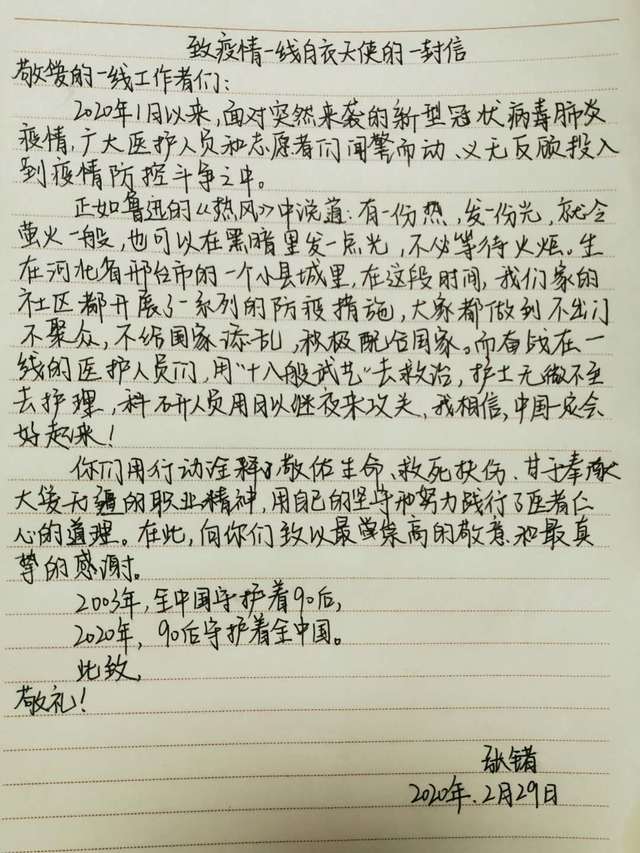 致疫情一线白衣天使的一封信
敬爱的一线工作者们：
2020年1月以来，面对突然来袭的新型冠状病毒肺炎
疫情，广大医护人员和志愿者们闻警而动、义无反顾投入
到疫情防控斗争之中。
正如鲁迅的《热风》中说道：有一份热，发一份光，就令
萤火一般，也可以在黑暗里发一点光，不必等待火炬。生
在河北省邢台市的一个小县城里，在这段时间，我们家的
社区都开展了一系列的防疫措施，大家都做到不出门
不聚众，不给国家添乱，积极配合国家。而奋战在一
线的医护人员们，用"十八般武艺"去救治，护士无微不至
去护理，科研人员用日以继夜来攻关，我相信，中国一定会
好起来！
你们用行动诠释了敬佑生命、救死扶伤、甘于奉献
大爱无疆的职业精神，用自己的坚守和努力践行了医者仁
心的道理。在此，向你们致以最崇高的敬意和最真
挚的感谢。
2003年，全中国守护着90后，
2020年，90后守护着全中国。
此致，
敬礼！
张锴
2020年.2月29日